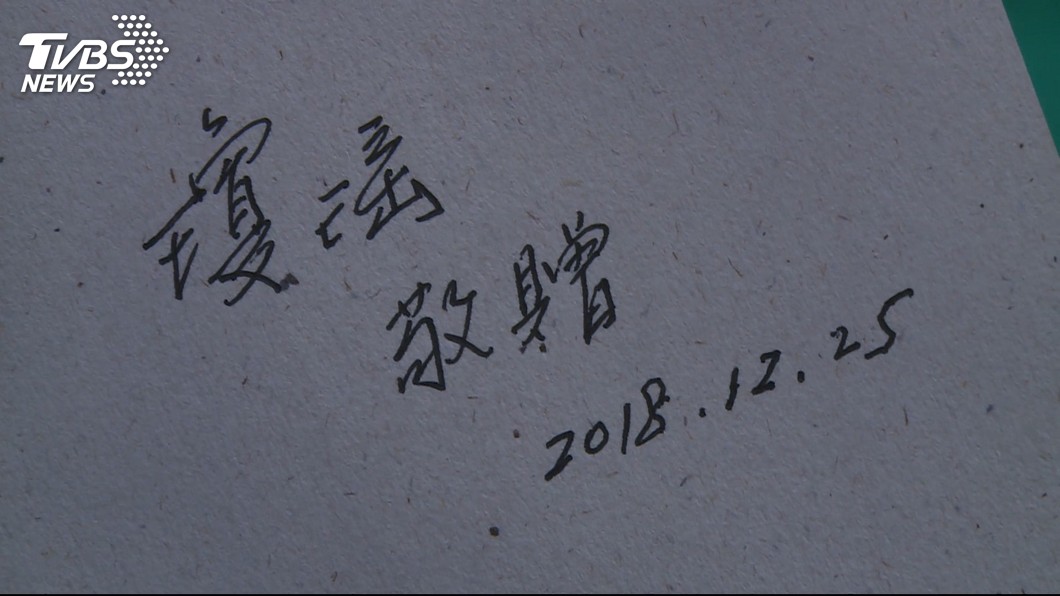 TVBS
NEWS
瓊瑤
敬贈
2018.12.25